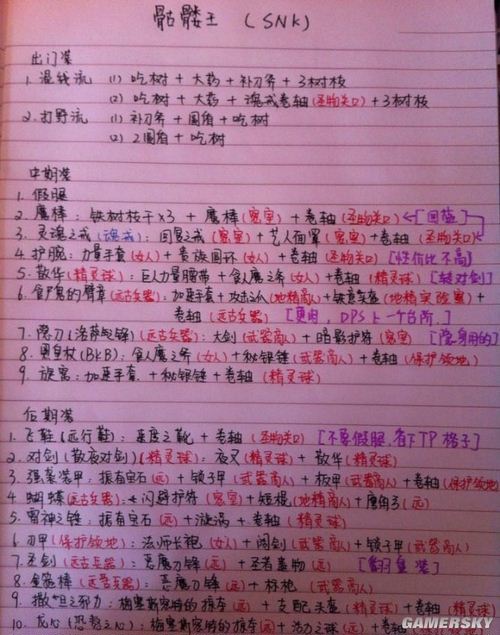 骷髅王 (SNK)
出门装
1. 混线流 (1) 吃树 + 大药 + 补刀斧 + 3树枝
(2) 吃树 + 大药 + 魂戒卷轴(圣物关口) + 3树枝
2. 打野流 (1) 补刀斧 + 圆盾 + 吃树
(2) 2圆盾 + 吃树
中期装
1. 假腿
2. 魔棒: 铁树枝干x3 + 魔棒(密室) + 卷轴(圣物关口) ← [回蓝]
3. 灵魂之戒(魂戒): 回复之戒(密室) + 艺人面罩(密室) + 卷轴(圣物关口)
4. 护腕: 力量手套(女人) + 贵族圆环(女人) + 卷轴(圣物关口) [性价比不高]
5. 散华(精灵球): 巨人力量腰带 + 食人魔之斧(女人) + 卷轴(精灵球) [转对剑]
6. 食尸鬼的臂章(远古兵器): 加速手套 + 攻击之爪(地精商人) + 铁意头盔(地精实验室) +
卷轴(远古兵器) [更肉, DPS上一个台阶。]
7. 隐刀(洛萨之锋)(远古兵器): 大剑(武器商人) + 暗影护符(密室) [隐身用的]
8. 黑皇杖(BKB): 食人魔之斧(女人) + 秘银锤(武器商人) + 卷轴(保护领地)
9. 旋窝: 加速手套 + 秘银锤 + 卷轴(精灵球)
后期装
1. 飞鞋(远行鞋): 速度之靴 + 卷轴(圣物关口) [不要假腿, 省下TP格子]
2. 对剑(散夜对剑)(精灵球): 夜叉(精灵球) + 散华(精灵球)
3. 强袭装甲: 振奋宝石(远) + 锁子甲(武器商人) + 板甲(武器商人) + 卷轴(保护领地)
4. 蝴蝶(远古兵器): 闪避护符(密室) + 短棍(地精商人) + 鹰角弓(远)
5. 雷神之锤: 振奋宝石(远) + 漩涡 + 卷轴(精灵球)
6. 刃甲(保护领地): 法师长袍(女人) + 阔剑(武器商人) + 锁子甲(武器商人)
7. 圣剑(远古兵器): 恶魔刀锋(远) + 圣者遗物(远) [翻身装]
8. 金箍棒(远古兵器): 恶魔刀锋(远) + 标枪(武器商人)
9. 撒旦之邪力: 梅里斯察特的掠夺(远) + 支配头盔(精灵球) + 卷轴(精灵球)
10. 龙心(恐鳌之心): 梅里斯察特的掠夺(远) + 活力之球(远) + 卷轴
GAMERSKY